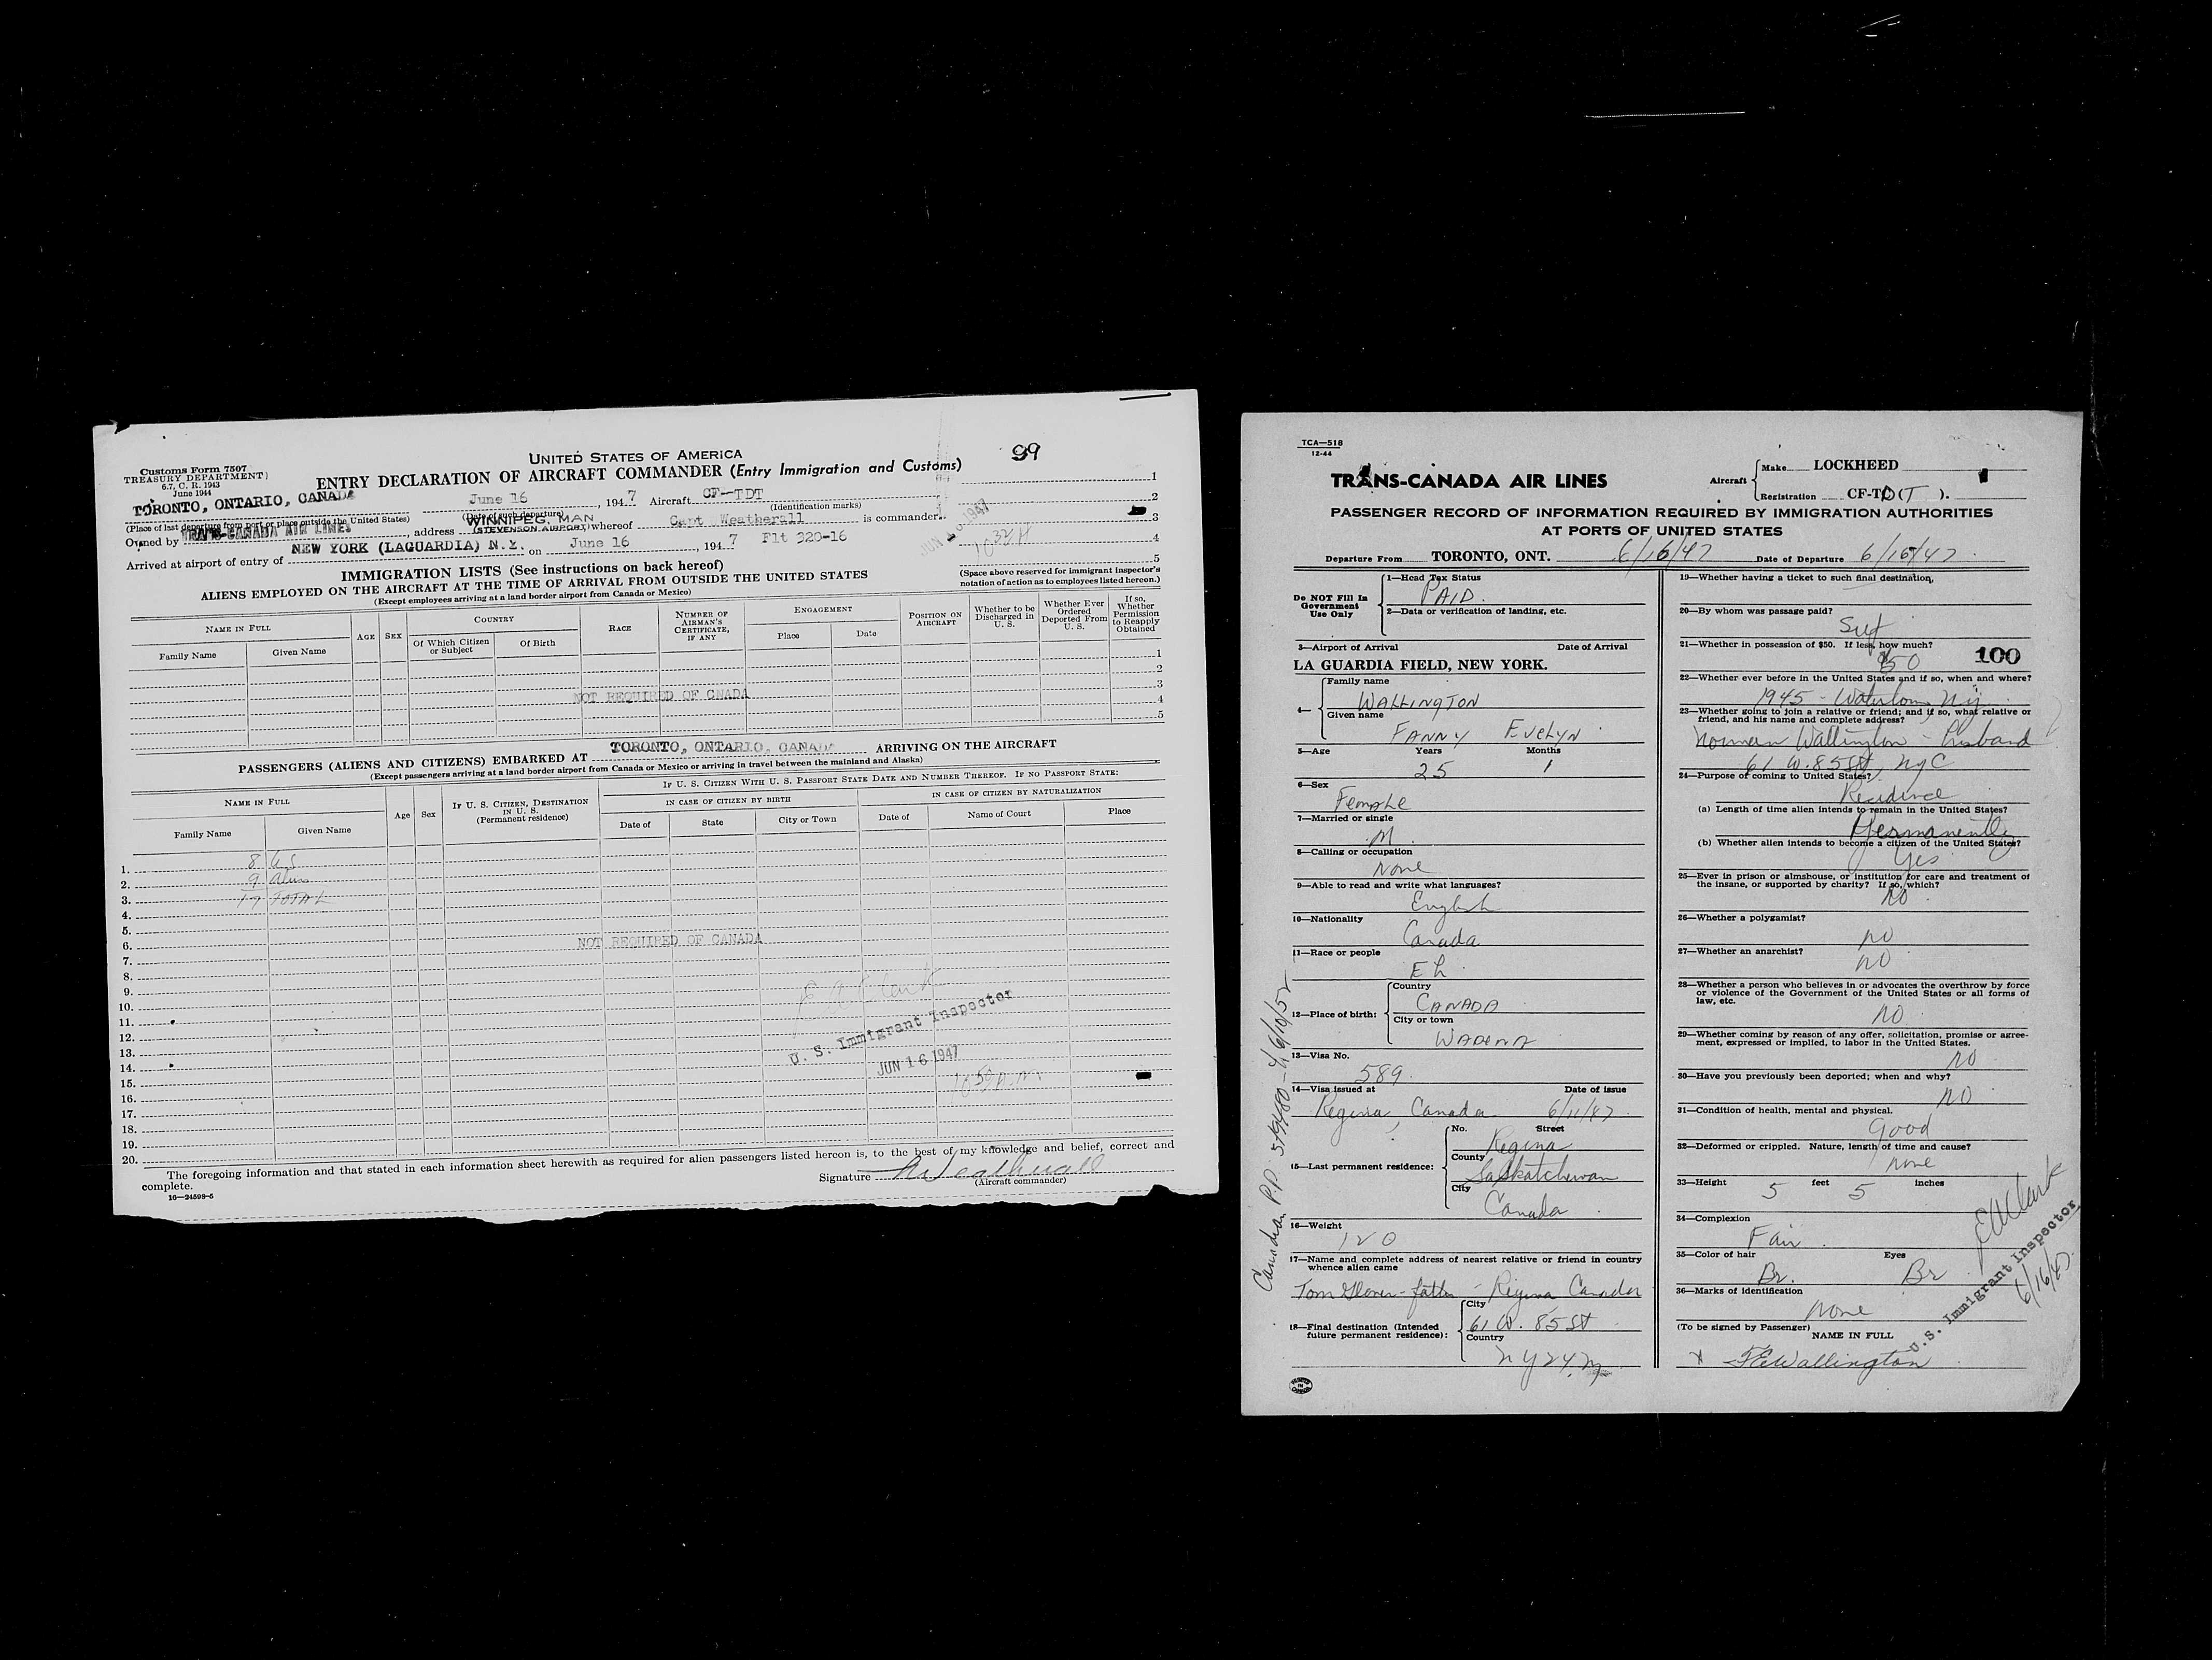 99
UNITED STATES OF AMERICA
Customs Form 7507
TREASURY DEPARTMENT
6.7, C. R. 1943
June 1944
ENTRY DECLARATION OF AIRCRAFT COMMANDER (Entry Immigration and Customs)
TORONTO, ONTARIO, CANADA June 16, 1947 Aircraft CF-TDT
(Place of last departure from port or place outside the United States) (Date of such departure) (Identification marks)
Owned by TRANS-CANADA AIR LINES, address WINNIPEG, MAN (STEVENSON AIRPORT) whereof Capt Weatherall is commander.
Arrived at airport of entry of NEW YORK (LAGUARDIA) N.Y. on June 16, 1947 Flt 320-16
1
2
3
4
5
JUN 16 1947
(Space above reserved for immigrant inspector's
notation of action as to employees listed hereon.)
IMMIGRATION LISTS (See instructions on back hereof)
ALIENS EMPLOYED ON THE AIRCRAFT AT THE TIME OF ARRIVAL FROM OUTSIDE THE UNITED STATES
(Except employees arriving at a land border airport from Canada or Mexico)
NAME IN FULL
Family Name Given Name
AGE
SEX
COUNTRY
Of Which Citizen or Subject Of Birth
RACE
NUMBER OF AIRMAN'S CERTIFICATE, IF ANY
ENGAGEMENT
Place Date
POSITION ON AIRCRAFT
Whether to be Discharged in U. S.
Whether Ever Ordered Deported From U. S.
If so, Whether Permission to Reapply Obtained
1
2
3
4
5
NOT REQUIRED OF CNADA
PASSENGERS (ALIENS AND CITIZENS) EMBARKED AT TORONTO, ONTARIO, CANADA ARRIVING ON THE AIRCRAFT
(Except passengers arriving at a land border airport from Canada or Mexico or arriving in travel between the mainland and Alaska)
NAME IN FULL
Family Name Given Name
Age
Sex
IF U. S. CITIZEN, DESTINATION IN U. S. (Permanent residence)
IF U. S. CITIZEN WITH U. S. PASSPORT STATE DATE AND NUMBER THEREOF. IF NO PASSPORT STATE:
IN CASE OF CITIZEN BY BIRTH
Date of State City or Town
IN CASE OF CITIZEN BY NATURALIZATION
Date of Name of Court Place
1. 8 US
2. 9 Aliens
3. 17 TOTAL
4.
5.
6. NOT REQUIRED OF CANADA
7.
8.
9.
10.
11.
12.
13.
14.
15.
16.
17.
18.
19.
20.
E A Clark
U. S. Immigrant Inspector
JUN 16 1947
The foregoing information and that stated in each information sheet herewith as required for alien passengers listed hereon is, to the best of my knowledge and belief, correct and
complete.
Signature Weatherall
(Aircraft commander)
16—24598-5
TCA—518
12-44
TRANS-CANADA AIR LINES
Aircraft
Make LOCKHEED
Registration CF-TD(T).
PASSENGER RECORD OF INFORMATION REQUIRED BY IMMIGRATION AUTHORITIES
AT PORTS OF UNITED STATES
Departure From TORONTO, ONT. 6/16/47 Date of Departure 6/16/47
Do NOT Fill In Government Use Only
1—Head Tax Status
PAID.
2—Data or verification of landing, etc.
3—Airport of Arrival Date of Arrival
LA GUARDIA FIELD, NEW YORK.
4—
Family name
WALLINGTON
Given name
FANNY EVELYN
5—Age Years Months
25 1
6—Sex
Female
7—Married or single
M
8—Calling or occupation
None
9—Able to read and write what languages?
English
10—Nationality
Canada
11—Race or people
Eh
12—Place of birth:
Country
CANADA
City or town
WADENA
13—Visa No.
589
14—Visa issued at Date of issue
Regina, Canada 6/11/47
15—Last permanent residence:
No. Street
Regina
County
Saskatchewan
City
Canada
16—Weight
120
17—Name and complete address of nearest relative or friend in country
whence alien came
Tom Glover - father - Regina Canada
18—Final destination (Intended
future permanent residence):
City
61 W. 85 St
Country
NY 24
Canadian P.P.
19—Whether having a ticket to such final destination,
20—By whom was passage paid?
Self
21—Whether in possession of $50. If less, how much?
$50
100
22—Whether ever before in the United States and if so, when and where?
1945 - Waterloo, NY
23—Whether going to join a relative or friend; and if so, what relative or
friend, and his name and complete address?
Norman Wallington - husband
61 W. 85 St, NYC
24—Purpose of coming to United States?
Residence
(a) Length of time alien intends to remain in the United States?
Permanently
(b) Whether alien intends to become a citizen of the United States?
Yes
25—Ever in prison or almshouse, or institution for care and treatment of
the insane, or supported by charity? If so, which?
No
26—Whether a polygamist?
no
27—Whether an anarchist?
no
28—Whether a person who believes in or advocates the overthrow by force
or violence of the Government of the United States or all forms of
law, etc.
no
29—Whether coming by reason of any offer, solicitation, promise or agree-
ment, expressed or implied, to labor in the United States.
no
30—Have you previously been deported; when and why?
no
31—Condition of health, mental and physical.
Good
32—Deformed or crippled. Nature, length of time and cause?
none
33—Height 5 feet 5 inches
34—Complexion
Fair
35—Color of hair Eyes
Br. Br
36—Marks of identification
none
(To be signed by Passenger)
NAME IN FULL
x F E Wallington
E A Clark
U. S. Immigrant Inspector
6/16/47